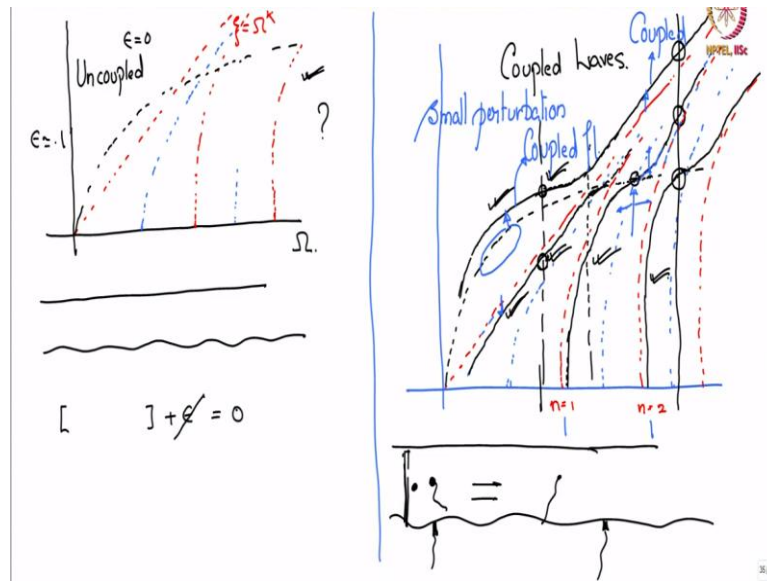 ε=0
Uncoupled
ξ=Ω*
ε=.1
?
Ω.
[ ]+ε = 0
Coupled Waves.
Coupled
NPTEL, IISc
Small perturbation
Coupled fl.
n=1
n=2
=
36